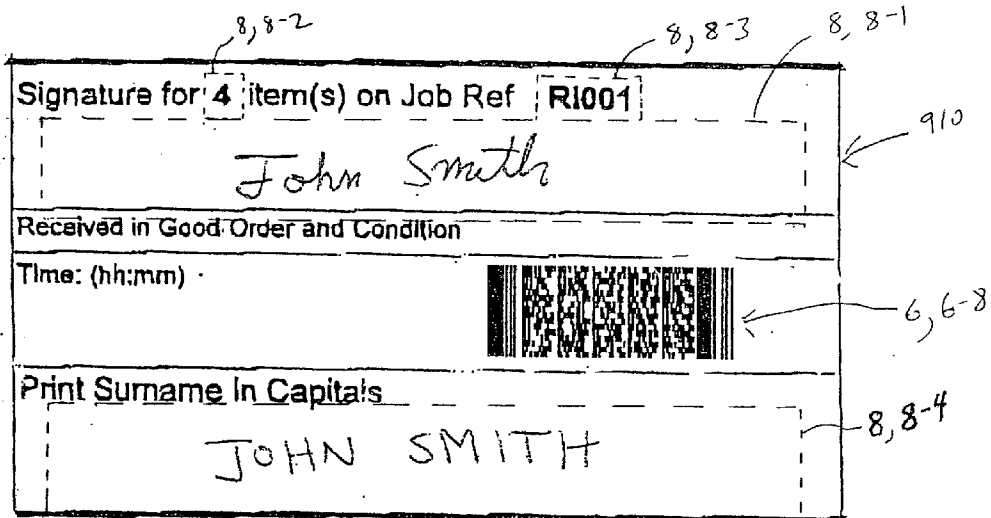 8, 8-2
8, 8-3
8, 8-1
Signature for 4 item(s) on Job Ref RI001
910
John Smith
Received in Good Order and Condition
Time: (hh:mm)
6, 6-8
Print Surname in Capitals
8, 8-4
JOHN SMITH